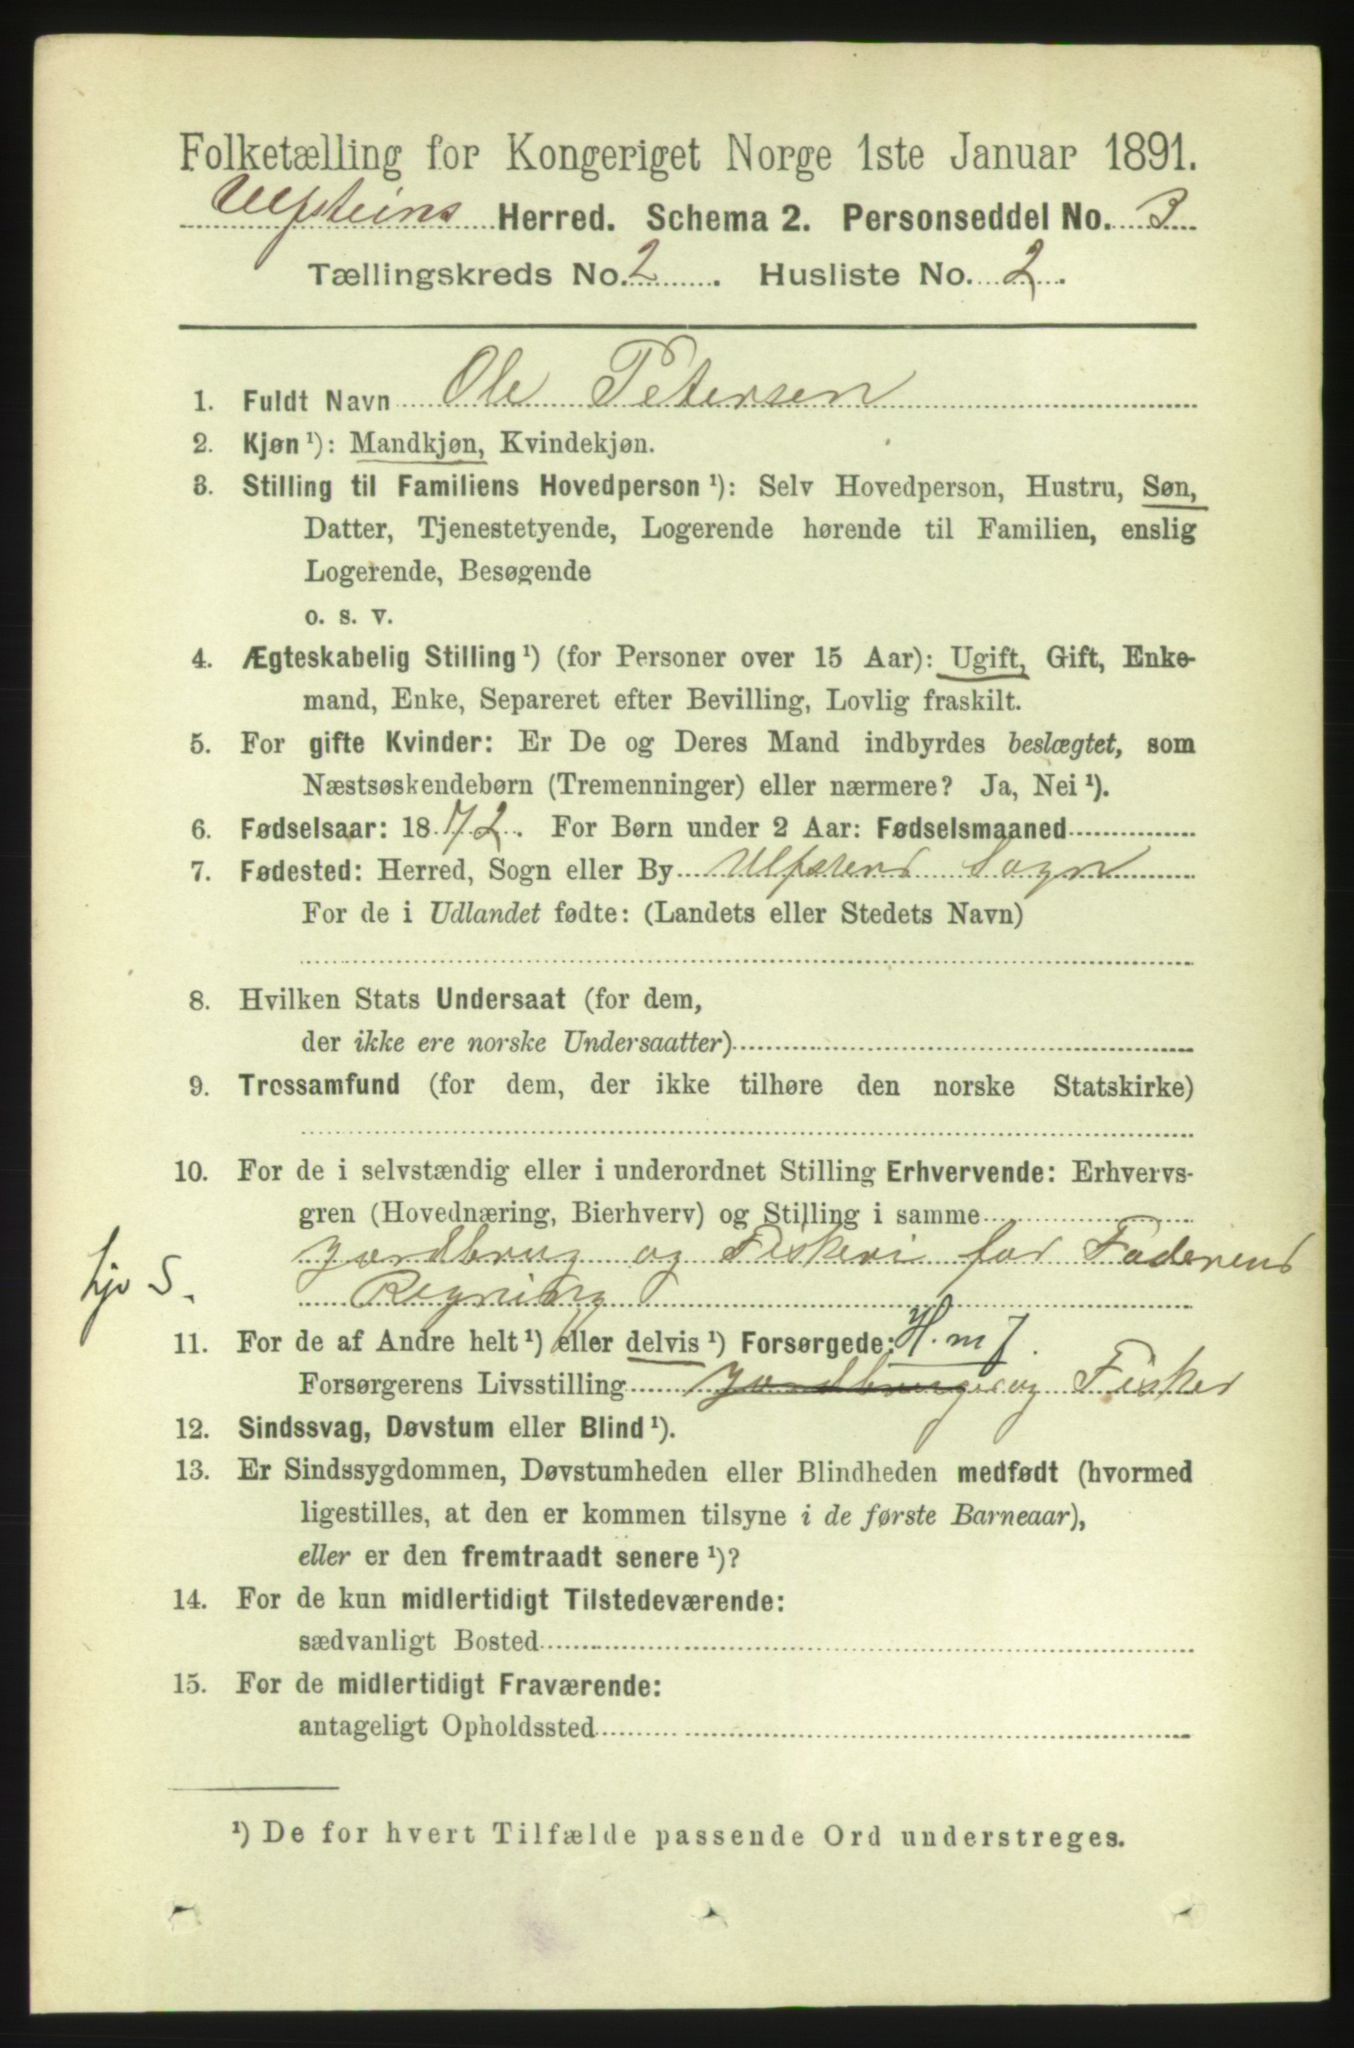 Folketælling for Kongeriget Norge 1ste Januar 1891.
Ulfsteins Herred. Schema 2. Personseddel No. 3
Tællingskreds No. 2. Husliste No. 2.
1. Fuldt Navn Ole Petersen
2. Kjøn ¹): Mandkjøn, Kvindekjøn.
3. Stilling til Familiens Hovedperson ¹): Selv Hovedperson, Hustru, Søn,
Datter, Tjenestetyende, Logerende hørende til Familien, enslig
Logerende, Besøgende
o. s. v.
4. Ægteskabelig Stilling ¹) (for Personer over 15 Aar): Ugift, Gift, Enke-
mand, Enke, Separeret efter Bevilling, Lovlig fraskilt.
5. For gifte Kvinder: Er De og Deres Mand indbyrdes beslægtet, som
Næstsøskendebørn (Tremenninger) eller nærmere? Ja, Nei ¹).
6. Fødselsaar: 1872. For Børn under 2 Aar: Fødselsmaaned
7. Fødested: Herred, Sogn eller By Ulfstens Sogn
For de i Udlandet fødte: (Landets eller Stedets Navn)
8. Hvilken Stats Undersaat (for dem,
der ikke ere norske Undersaatter)
9. Trossamfund (for dem, der ikke tilhøre den norske Statskirke)
10. For de i selvstændig eller i underordnet Stilling Erhvervende: Erhvervs-
gren (Hovednæring, Bierhverv) og Stilling i samme
Jordbrug og Fiskeri for Faderens
Regning
11. For de af Andre helt ¹) eller delvis ¹) Forsørgede: H. m J.
Forsørgerens Livsstilling Jordbruger og Fisker
12. Sindssvag, Døvstum eller Blind ¹).
13. Er Sindssygdommen, Døvstumheden eller Blindheden medfødt (hvormed
ligestilles, at den er kommen tilsyne i de første Barneaar),
eller er den fremtraadt senere ¹)?
14. For de kun midlertidigt Tilstedeværende:
sædvanligt Bosted
15. For de midlertidigt Fraværende:
antageligt Opholdssted
¹) De for hvert Tilfælde passende Ord understreges.